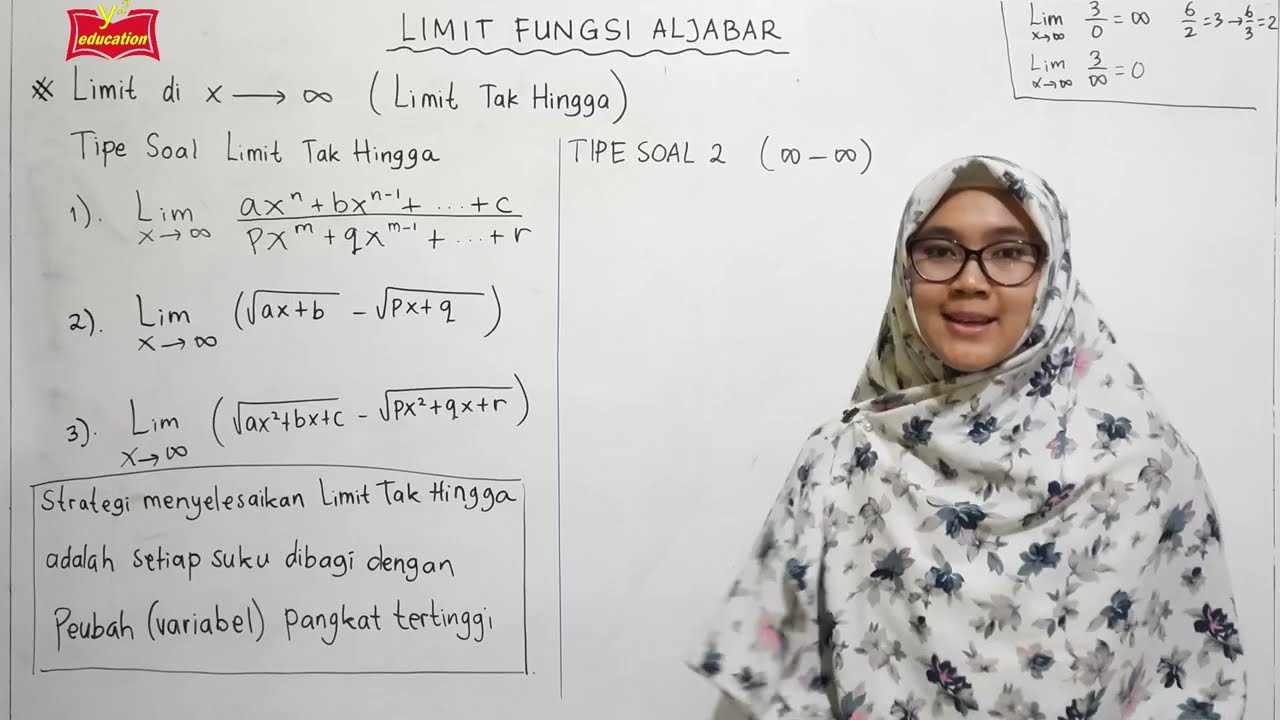 y
education
LIMIT FUNGSI ALJABAR
* Limit di x → ∞ (Limit Tak Hingga)
Tipe Soal Limit Tak Hingga
1). Lim x→∞ (ax^n + bx^(n-1) + ... + c) / (px^m + qx^(m-1) + ... + r)
2). Lim x→∞ (√(ax+b) - √(px+q))
3). Lim x→∞ (√(ax²+bx+c) - √(px²+qx+r))
Strategi menyelesaikan Limit Tak Hingga
adalah setiap suku dibagi dengan
Peubah (variabel) pangkat tertinggi
TIPE SOAL 2 (∞ - ∞)
Lim x→∞ 3/0 = ∞ 6/2 = 3 → 6/3 = 2
Lim x→∞ 3/∞ = 0